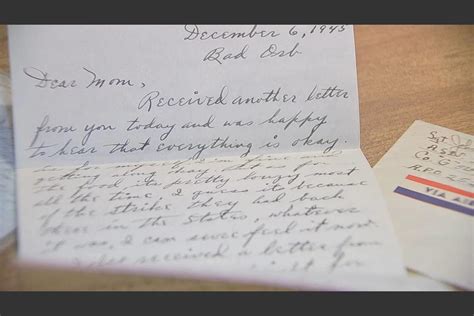 December 6, 1945
Bad Orb
Dear Mom,
Received another letter
from you today and was happy
to hear that everything is okay.
getting along okay
the food, its pretty lousy most
all the time, I guess its because
of the strike they had back
there in the States, whatever
it was, I can sure feel it now.
received a letter from
for
Sgt
Co. G
APO
VIA